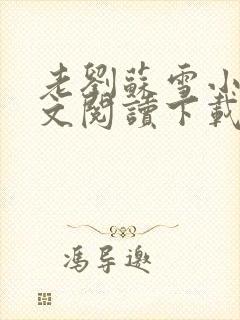 老劉蘇雪小
文閱讀下載
馮导邀